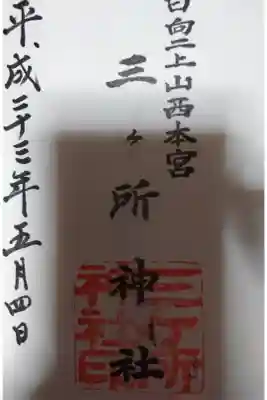 日向二上山西本宮
三ヶ所神社
平成二十三年五月四日
三ケ所
神社印